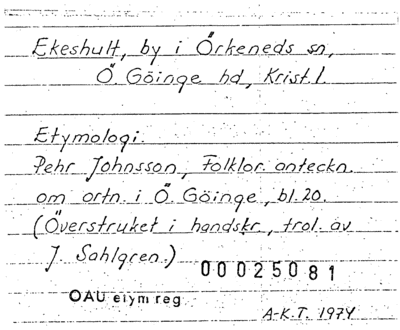 Ekeshult, by i Örkeneds sn,
Ö. Göinge hd, Krist. l.
Etymologi.
Pehr Johnsson, Folklor. anteckn.
om ortn. i Ö. Göinge, bl. 20.
(Överstruket i handskr., trol. av
J. Sahlgren.)
00025081
OAU etym reg
A-K.T. 1974